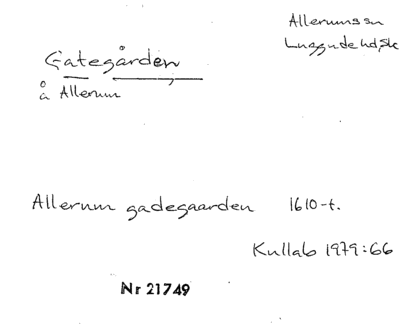 Allerums sn
Luggude hd, Sk
Gategården
å Allerum
Allerum gadegaarden 1610-t.
Kullab 1979:66
Nr 21749